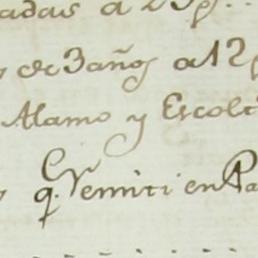 adas a 25p.
de 3 años a 12p
Alamo y Escolt
q. Remiti en Pa